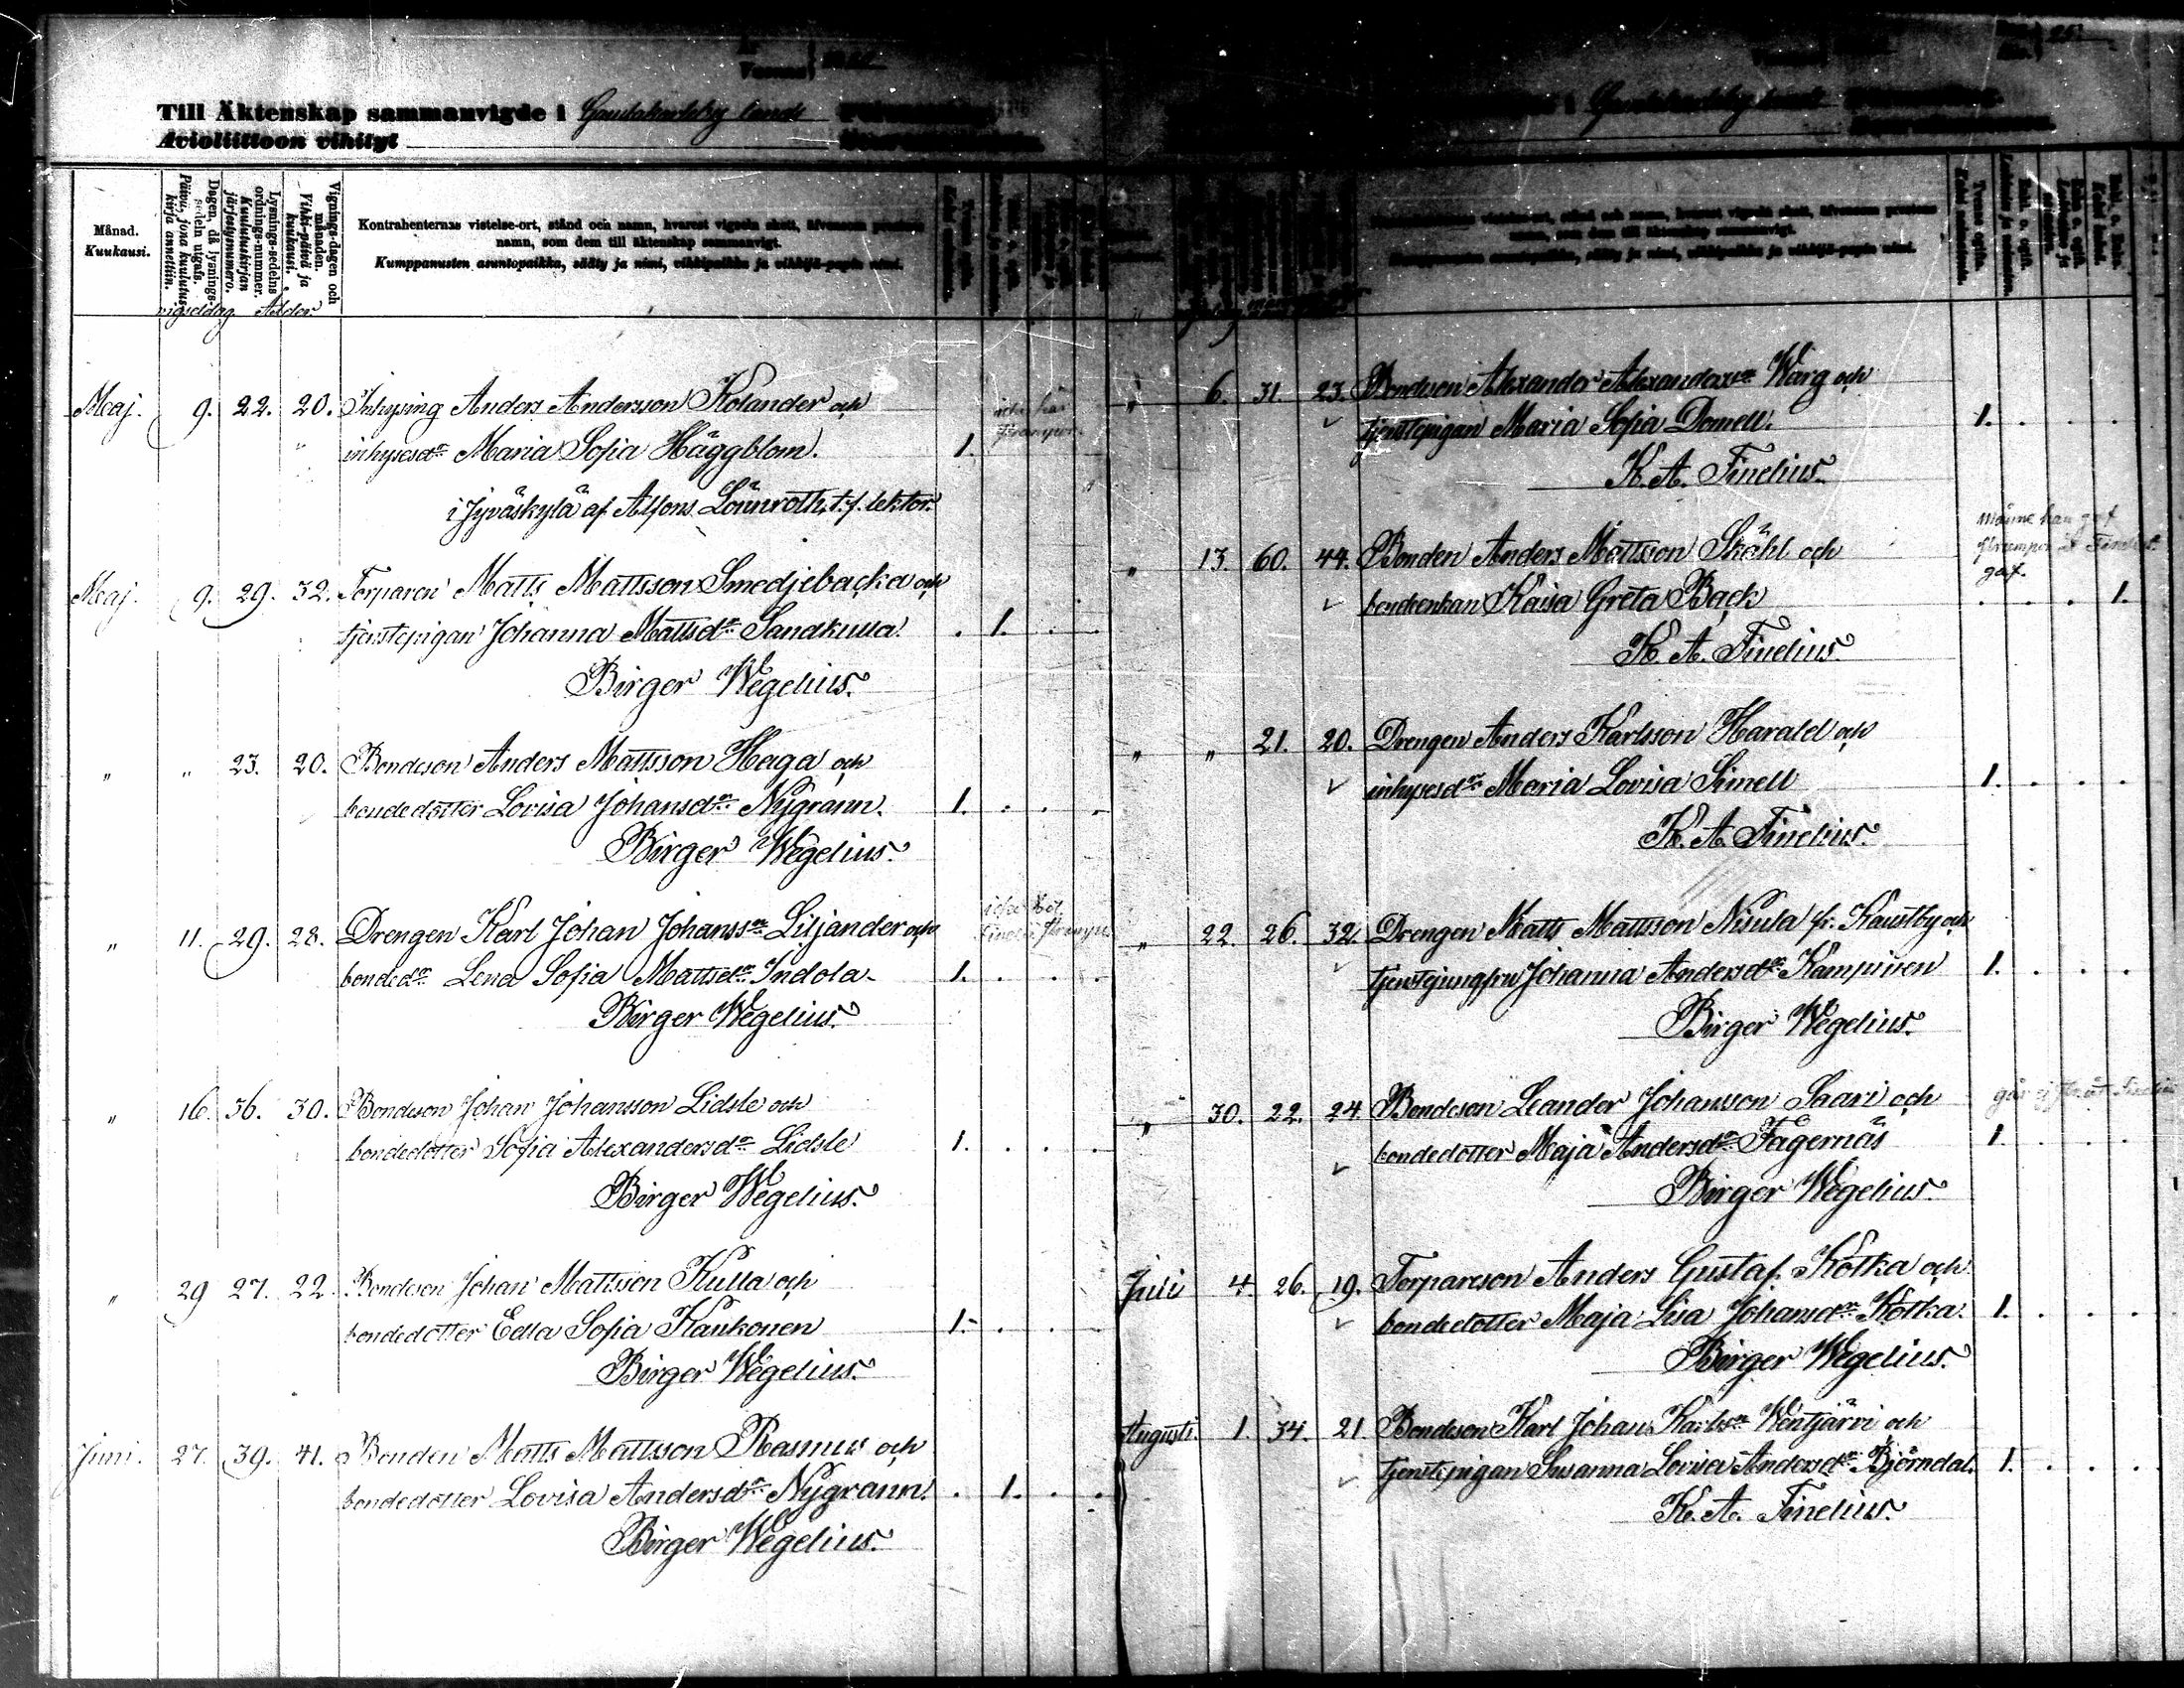 Till Äktenskap sammanvigde i Gamlakarleby lands
Avioliittoon vihityt
Månad.
Kuukausi.
Dagen, då lysnings-
sedeln utgafs.
Päivä, jona kuulutus-
kirja annettiin.
Lysnings-sedelns
ordnings-nummer.
Kuulutuskirjan
järjestysnumero.
Vignings-dagen och
månaden.
Vihki-päivä ja
kuukausi.
Kontrahenternas vistelse-ort, stånd och namn, hvarest vigseln skett, äfvensom prestens
namn, som dem till äktenskap sammanvigt.
Kumppanusten asuntopaikka, sääty ja nimi, vihkipaikka ja vihkijä-papin nimi.
vigseldag Ålder
Maj. 9. 22. 20. Inhysing Anders Andersson Kolander och
inhysesdr Maria Sofia Häggblom. 1.
i Jyväskylä af Alfons Lönnroth, t.f. lektor.
Maj. 9. 29. 32. Torparen Matts Mattsson Smedjebacka och
tjenstepigan Johanna Mattsdr Sandkulla. . 1. . .
Birger Wegelius.
" " 23. 20. Bondeson Anders Mattsson Haga och
bondedotter Lovisa Johansdr Nygrann. 1. . . .
Birger Wegelius.
" 11. 29. 28. Drengen Karl Johan Johansson Liljander och
bondedr Lena Sofia Mattsdr Indola 1. . . .
Birger Wegelius.
" 16. 36. 30. Bondeson Johan Johansson Lidsle och
bondedotter Sofia Alexandersdr Lidsle 1. . . .
Birger Wegelius.
" 29 27. 22. Bondeson Johan Mattsson Kulla och
bondedotter Edla Sofia Kaukonen 1. . . .
Birger Wegelius.
Juni. 27. 39. 41. Bonden Matts Mattsson Rasmus och
bondedotter Lovisa Andersdr Nygrann. . 1. . .
Birger Wegelius.
i Gamlakarleby lands
" 6. 31. 23. Bondeson Alexander Alexandersson Warg och
tjenstepigan Maria Sofia Domell. 1. . . .
K. A. Finelius.
" 13. 60. 44. Bonden Anders Mattsson Ståhl och
bondeenkan Kaisa Greta Back . . . 1.
K. A. Finelius.
" " 21. 20. Drengen Anders Karlsson Harald och
inhysesdr Maria Lovisa Simell 1. . . .
K. A. Finelius.
" 22. 26. 32. Drengen Matts Mattsson Nisula fr. Kaustby och
tjenstejungfrun Johanna Andersdr Kampinen 1. . . .
Birger Wegelius.
" 30. 22. 24 Bondeson Leander Johansson Saari och
bondedotter Maja Andersdr Fagernäs 1. . . .
Birger Wegelius.
Juli 4. 26. 19. Torpareson Anders Gustaf Kotka och
bondedotter Maja Lisa Johansdr Kotka. 1. . . .
Birger Wegelius.
Augusti. 1. 34. 21. Bondeson Karl Johan Karlsson Wentjärvi och
tjenstepigan Susanna Lovisa Andersdr Björndal. 1. . . .
K. A. Finelius.